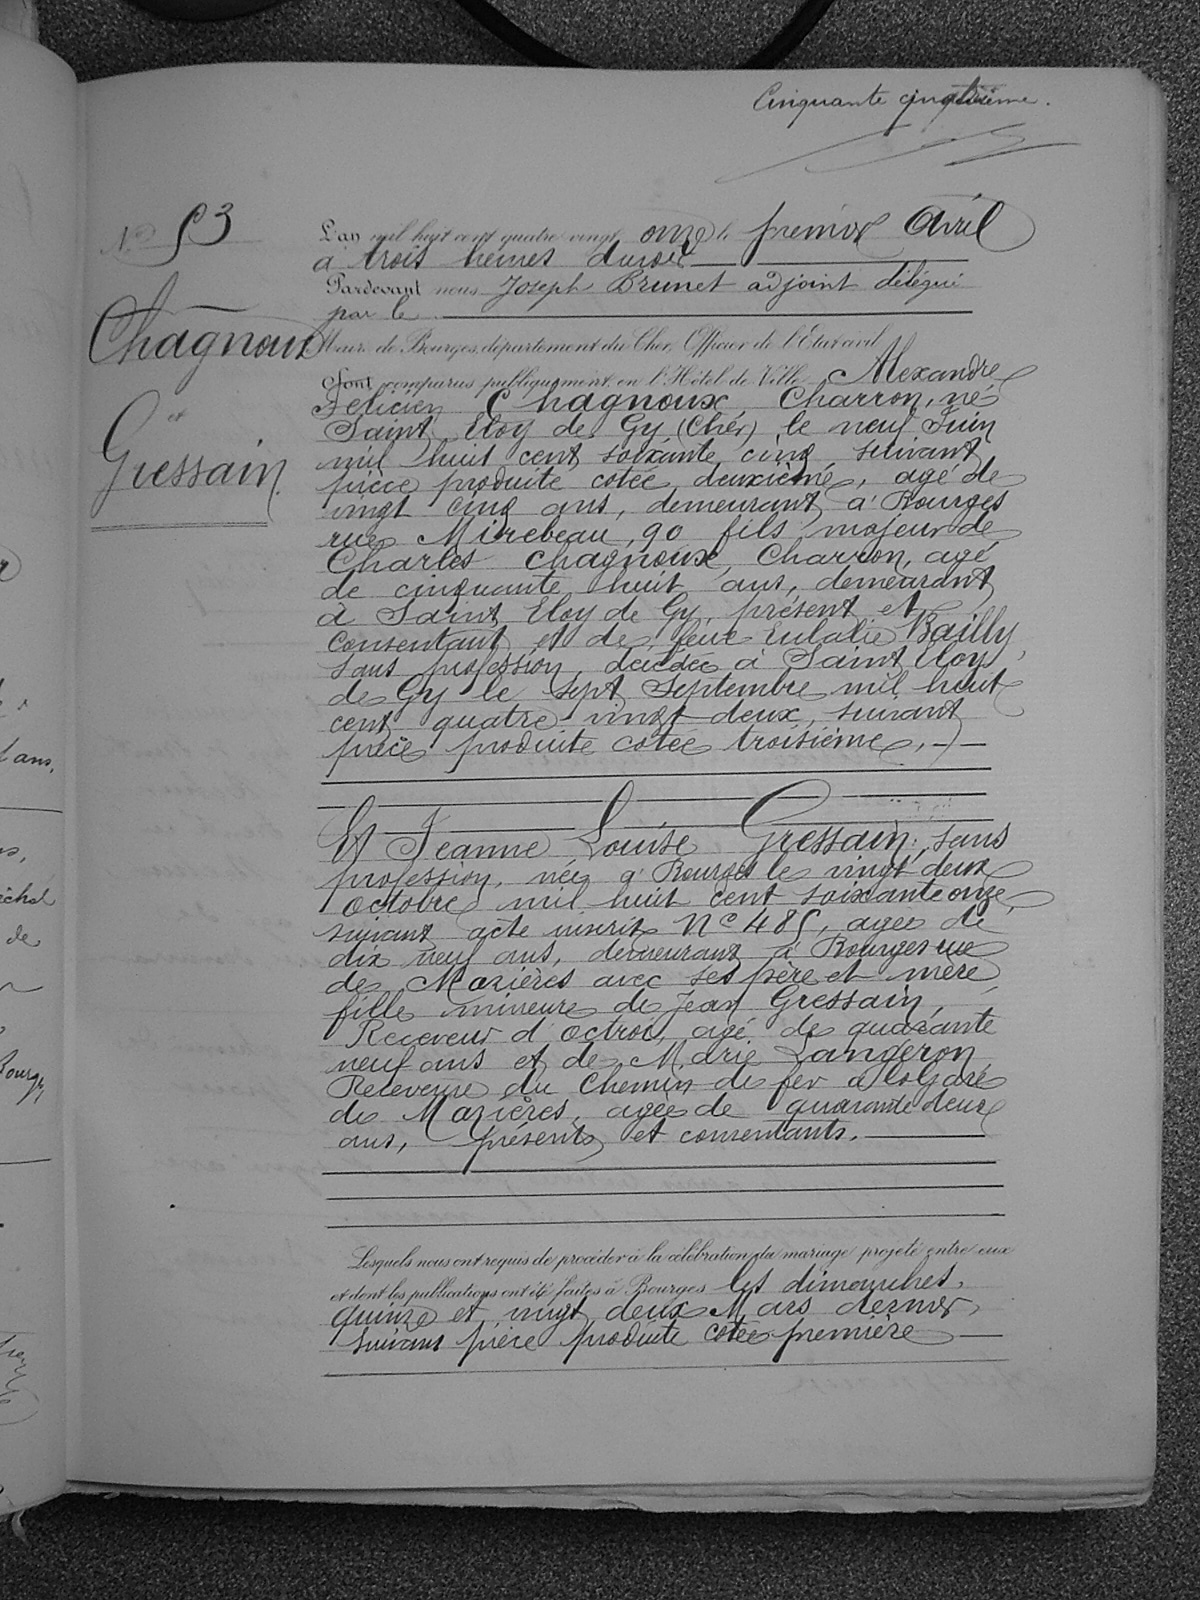 Cinquante cinquième.
No 53
L'an mil huit cent quatre vingt onze le premier Avril
à trois heures du soir
Pardevant nous Joseph Brunet adjoint délégué
par le
Maire de Bourges, département du Cher, Officier de l'État civil
Chagnoux
et
Gressain.
Sont comparus publiquement en l'Hôtel de Ville Alexandre
Félicien Chagnoux, Charron, né
Saint Eloy de Gy (Cher) le neuf Juin
mil huit cent soixante cinq suivant
pièce produite cotée deuxième, agé de
vingt cinq ans, demeurant à Bourges
rue Mirebeau, 90 fils majeur de
Charles Chagnoux, Charron, agé
de cinquante huit ans, demeurant
à Saint Eloy de Gy, présent et
consentant et de feue Eulalie Bailly
sans profession, décédée à Saint Eloy
de Gy le sept Septembre mil huit
cent quatre vingt deux, suivant
pièce produite cotée troisième,
Et Jeanne Louise Gressain, sans
profession, née à Bourges le vingt deux
Octobre mil huit cent soixante onze,
suivant acte inscrit No 485, agée de
dix neuf ans, demeurant à Bourges rue
de Mazières avec ses père et mère
fille mineure de Jean Gressain,
Receveur d'octroi, agé de quarante
neuf ans et de Marie Langeron
Receveuse du Chemin de fer à la Gare
de Mazières, agée de quarante deux
ans, présents et consentants.
Lesquels nous ont requis de procéder à la célébration du mariage projeté entre eux
et dont les publications ont été faites à Bourges les dimanches,
quinze et vingt deux Mars dernier,
suivant pièce produite cotée première